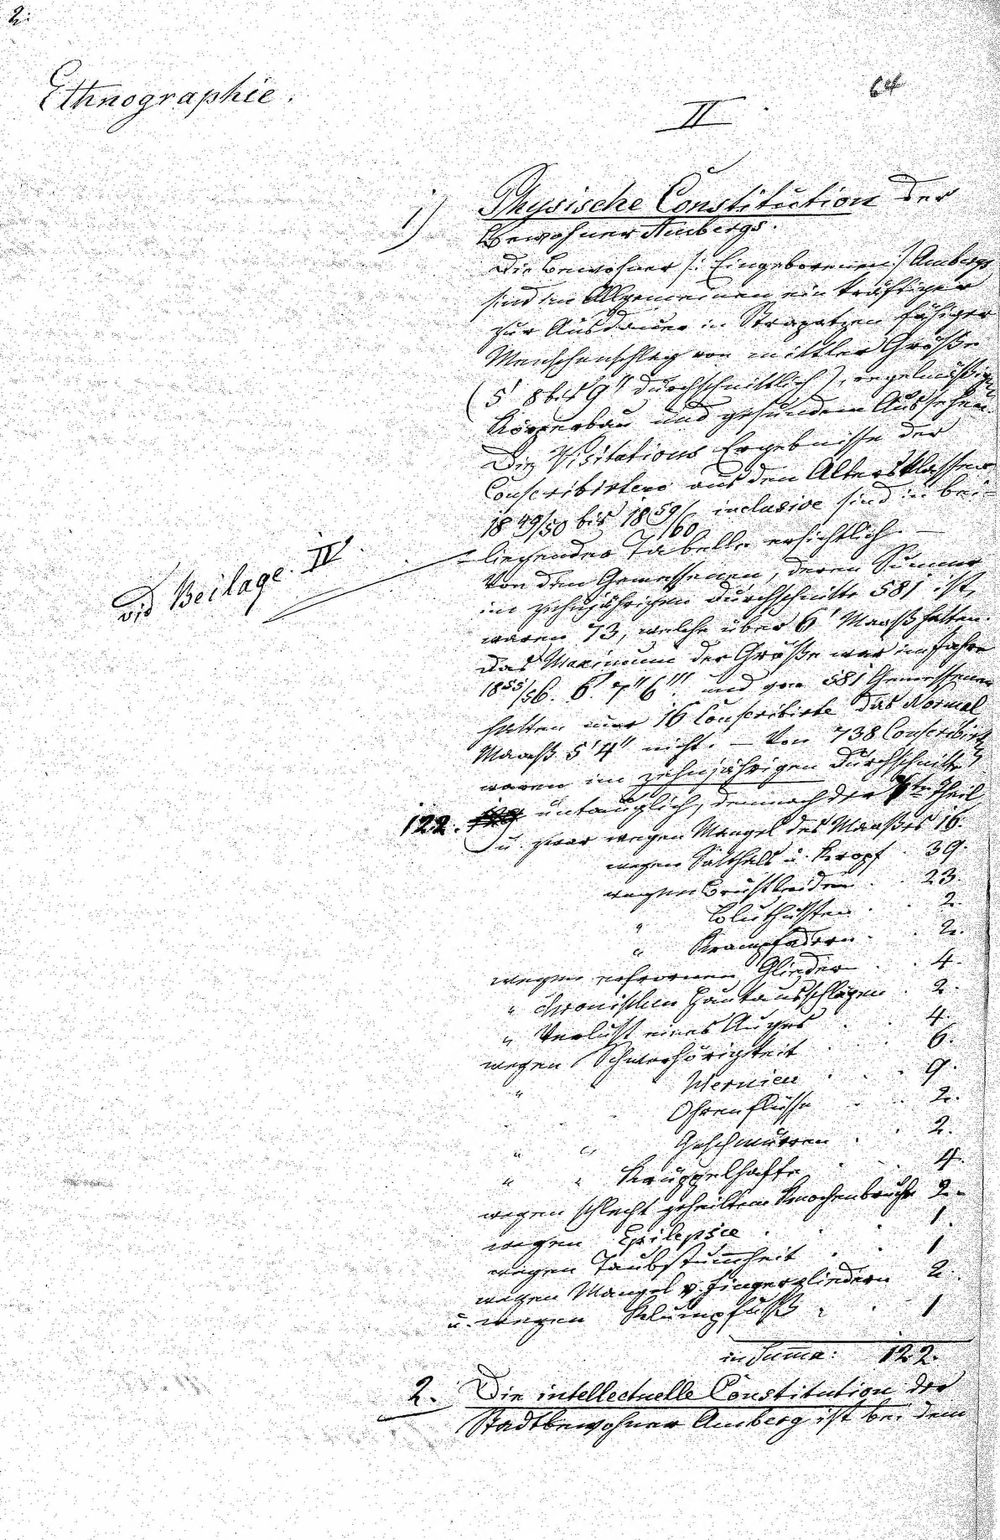 2.
Ethnographie.
64
II
1) Physische Constitution der
Bewohner Ambergs.
Die Bewohner /: Eingeborenen :/ Ambergs
sind im Allgemeinen ein kräftiger
zur Ausdauer in Strapatzen fähiger
Menschenschlag von mittler Größe
(5' 8 bis 9" durchschnittlich), regelmäßigen
Körperbau und gesundem Aussehen.
Die Visitations Ergebnisse der
Conscribirten aus den Altersklassen
1849/50 bis 1859/60 inclusive sind in bei-
liegender Tabelle ersichtlich. —
vid Beilage IV.
Von den Gemessenen, deren Summe
im zehnjährigen Durchschnitte 581 ist,
waren 73, welche über 6' Maaß hatten.
Das Maximum der Größe war im Jahre
1855/56. 6' 7" 6''' und von 581 Gemessenen
hatten nur 16 Conscribirte das Normal
Maaß 5' 4" nicht. — Von 738 Conscribirten
waren im zehnjährigen Durchschnitte
122. untauglich, demnach der 6te Theil
u. zwar wegen Mangel des Maaßes 16.
wegen Satthals u. Kropf . 39.
wegen Brustleiden . . 23
" Bluthusten . . 2.
" Krampfadern . . 2.
wegen erfrornen Glieder . . 4.
" chronischen Hautausschlägen . 2.
" Verlust eines Auges . . 4.
wegen Schwerhörigkeit . . 6.
" Hernien . . . 9.
Ohrenflüsse . . 2.
" " Geschwüren . . 2.
" " Krüppelhafte . . 4.
wegen schlecht geheiltem Knochenbruche 2.
wegen Epilepsie . . . 1.
wegen Taubstummheit . . 1
wegen Mangel v. Fingergliedern 2.
u. wegen Klumpfuß . . 1
in Summa: 122.
2. Die intellectuelle Constitution der
Stadtbewohner Amberg ist bei dem